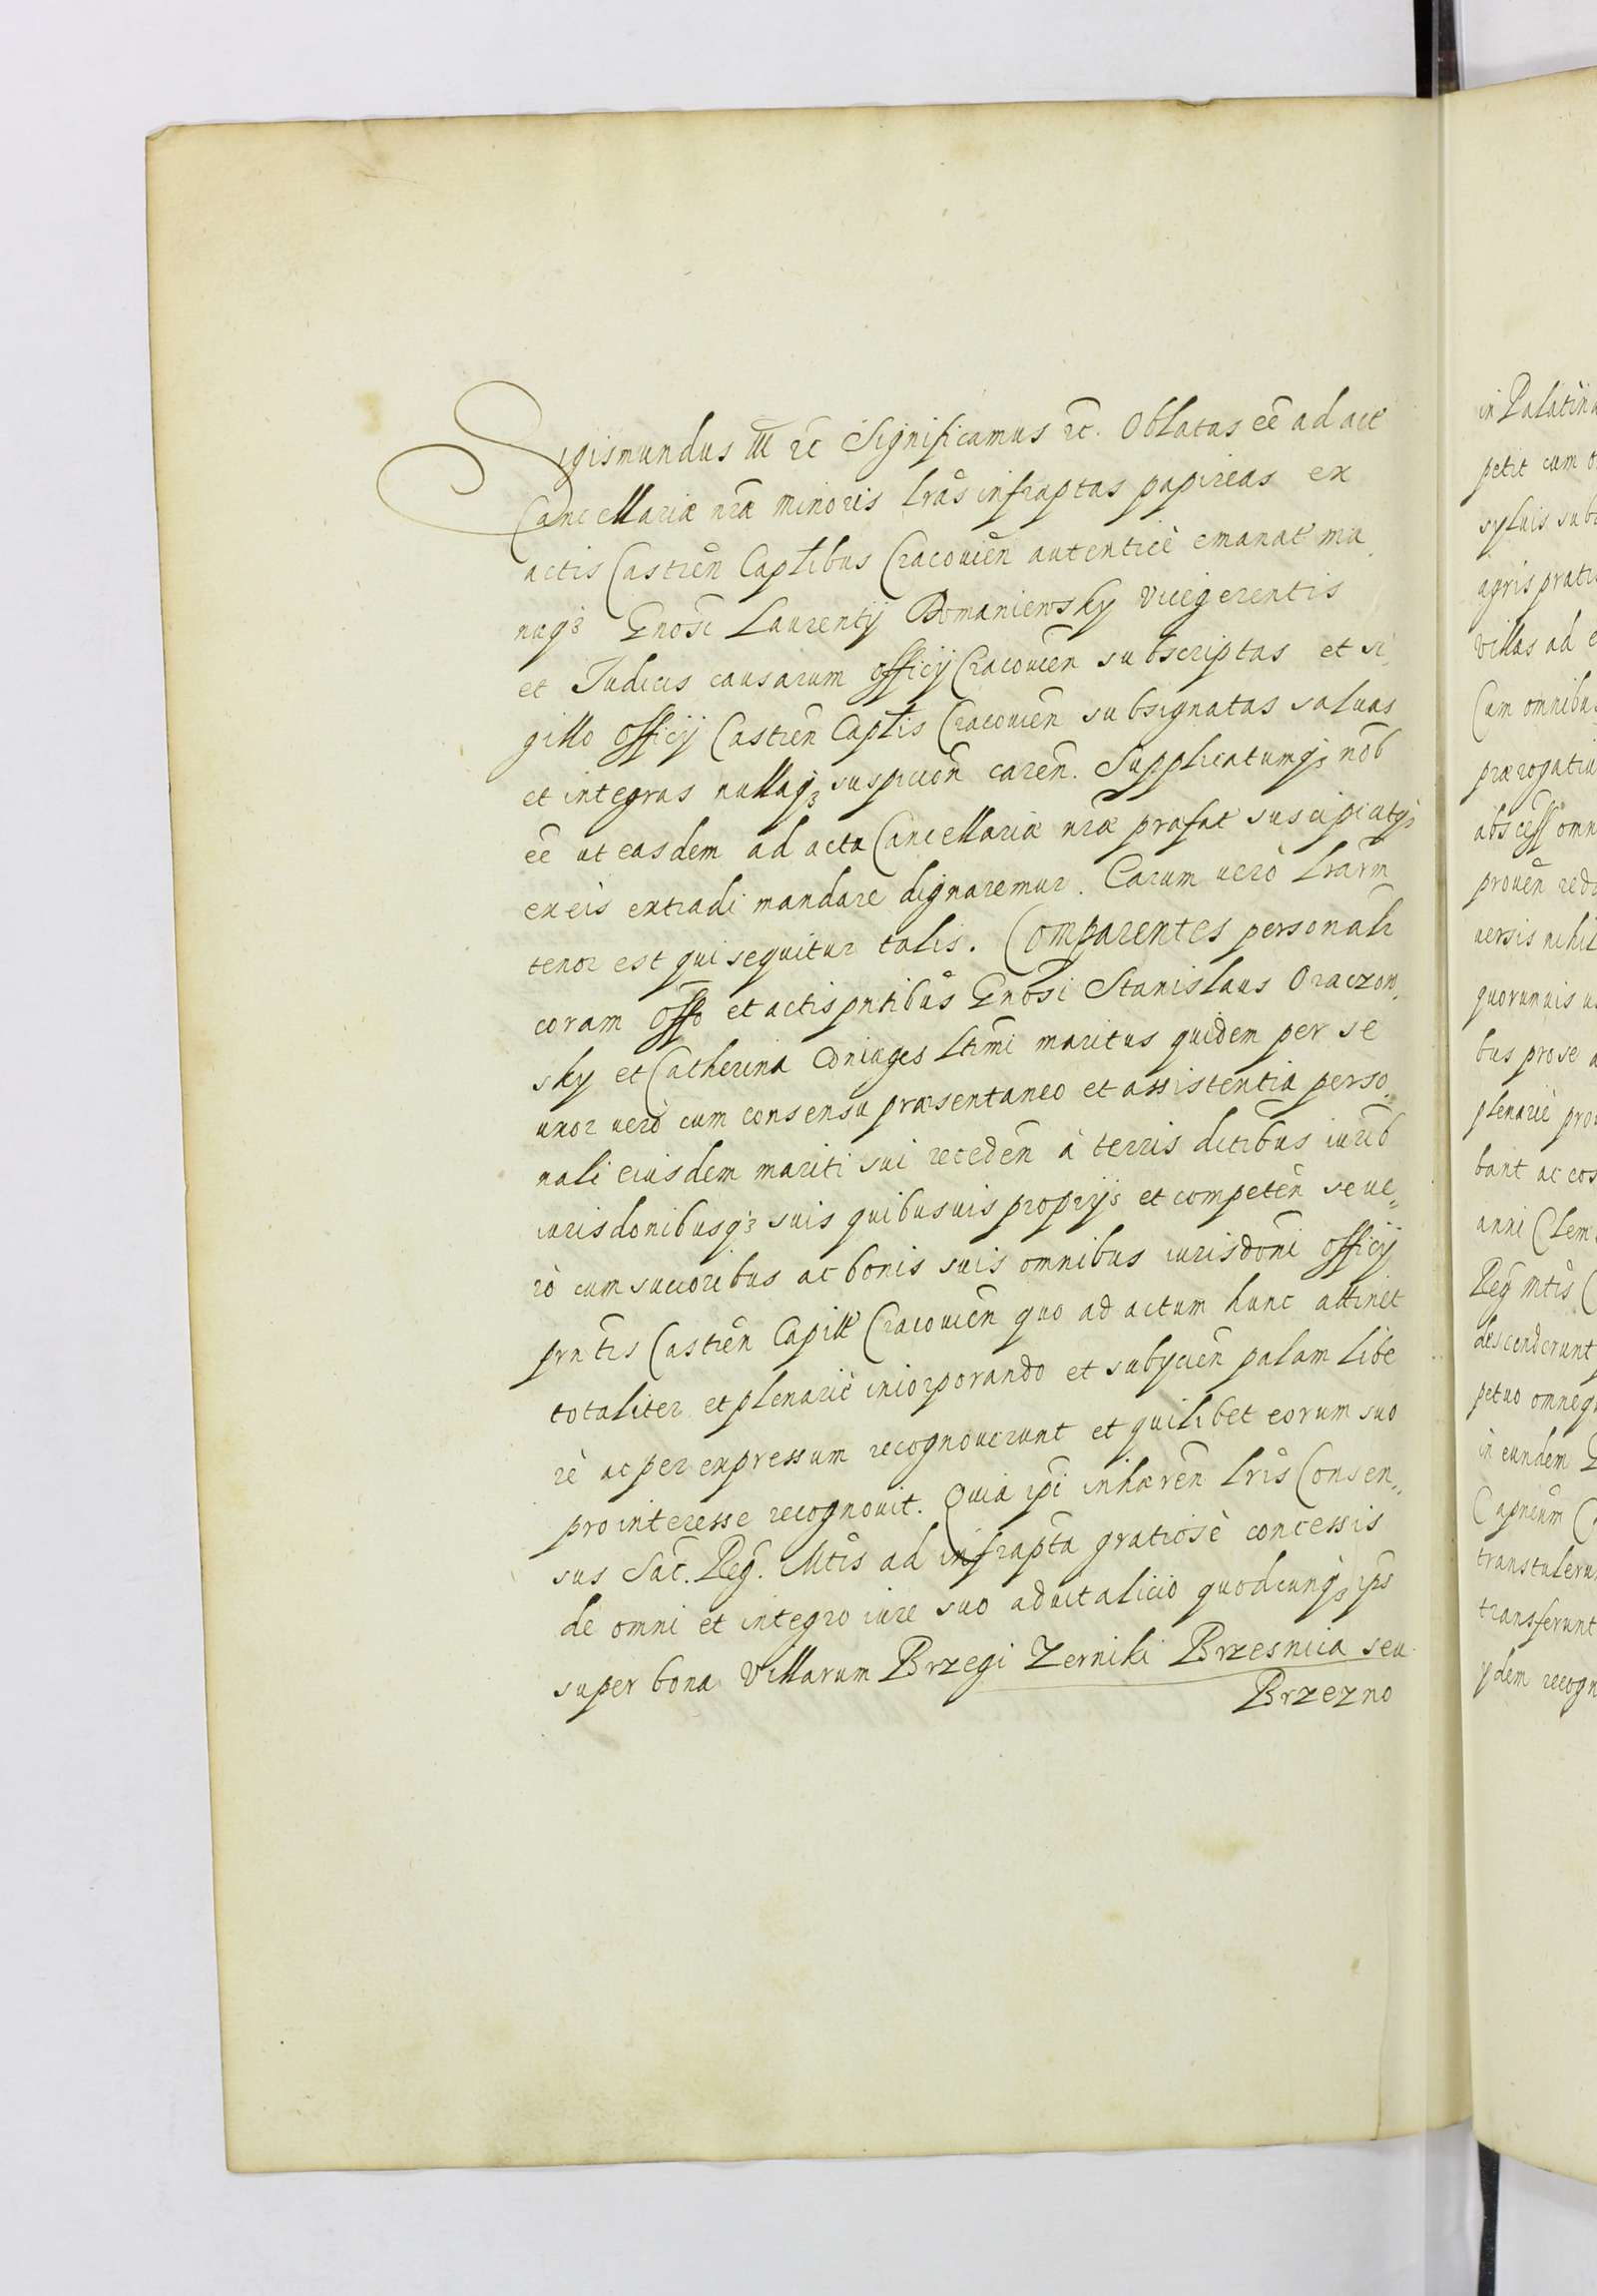 Sigismundus III etc Significamus etc. Oblatas eē ad act
Cancellariæ nrā minoris lrās infraptas papireas ex
actis Castren̄ Capłibus Cracouien̄ autenticè emanat ma
nuq3 Gnosi Laurentij Domaniewsky Vicegerentis
et Iudicis causarum officij Cracouien̄ subscriptas et si
gillo officij Castren̄ Capłis Cracouien̄ subsignatas saluas
et integras nullaq3 suspicion̄ caren̄. Supplicatumq3 nōb
eē ut easdem ad acta Cancellariæ nrae præfat suscipi atq3
ex eis extradi mandare dignaremur. Earum uerò lrārm
tenor est qui sequitur talis. Comparentes personalr
coram offō et actis pntibus Gnosi Stanislaus Oraczow,
sky et Catherina Coniuges lt̄mi maritus quidem per se
uxor uerò cum consensu præsentaneo et assistentia perso,
nali eiusdem mariti sui receden̄ à terris dictibus iurib
iurisdonibusq3 suis quibusuis proprijs et competen̄ se ue,,
rò cum succoribus ac bonis suis omnibus iurisdoni officij
prntis Castren̄ Capitł Cracouien̄ quo ad actum hunc attinet
totaliter et plenariè incorporando et subijcien̄ palam libe
rè ac per expressum recognouerunt et quilibet eorum suo
pro interesse recognouit. Quia ip̄i inhæren̄ lrīs Consen,,
sus Sac̄. Reḡ. Mtīs ad infrapta gratiosè concessis
de omni et integro iure suo aduitalicio quodcunq3 ip̄s
super bona Villarum Brzegi Zerniki Brzesnicia seu
Brzezno
in Palatin
petit cum
syluis sub
agris prati
Villas ad
Cum omnibu
prærogatiu
abscess omn
prouen̄ red
uersis nihil
quorumuis
bus pro se
plenariè pro
bant ac eos
anni Clem
Reḡ Mtīs
descenderunt
petuo omneq
in eundem
Capneum
transtulerun
transferunt
ydem recogn